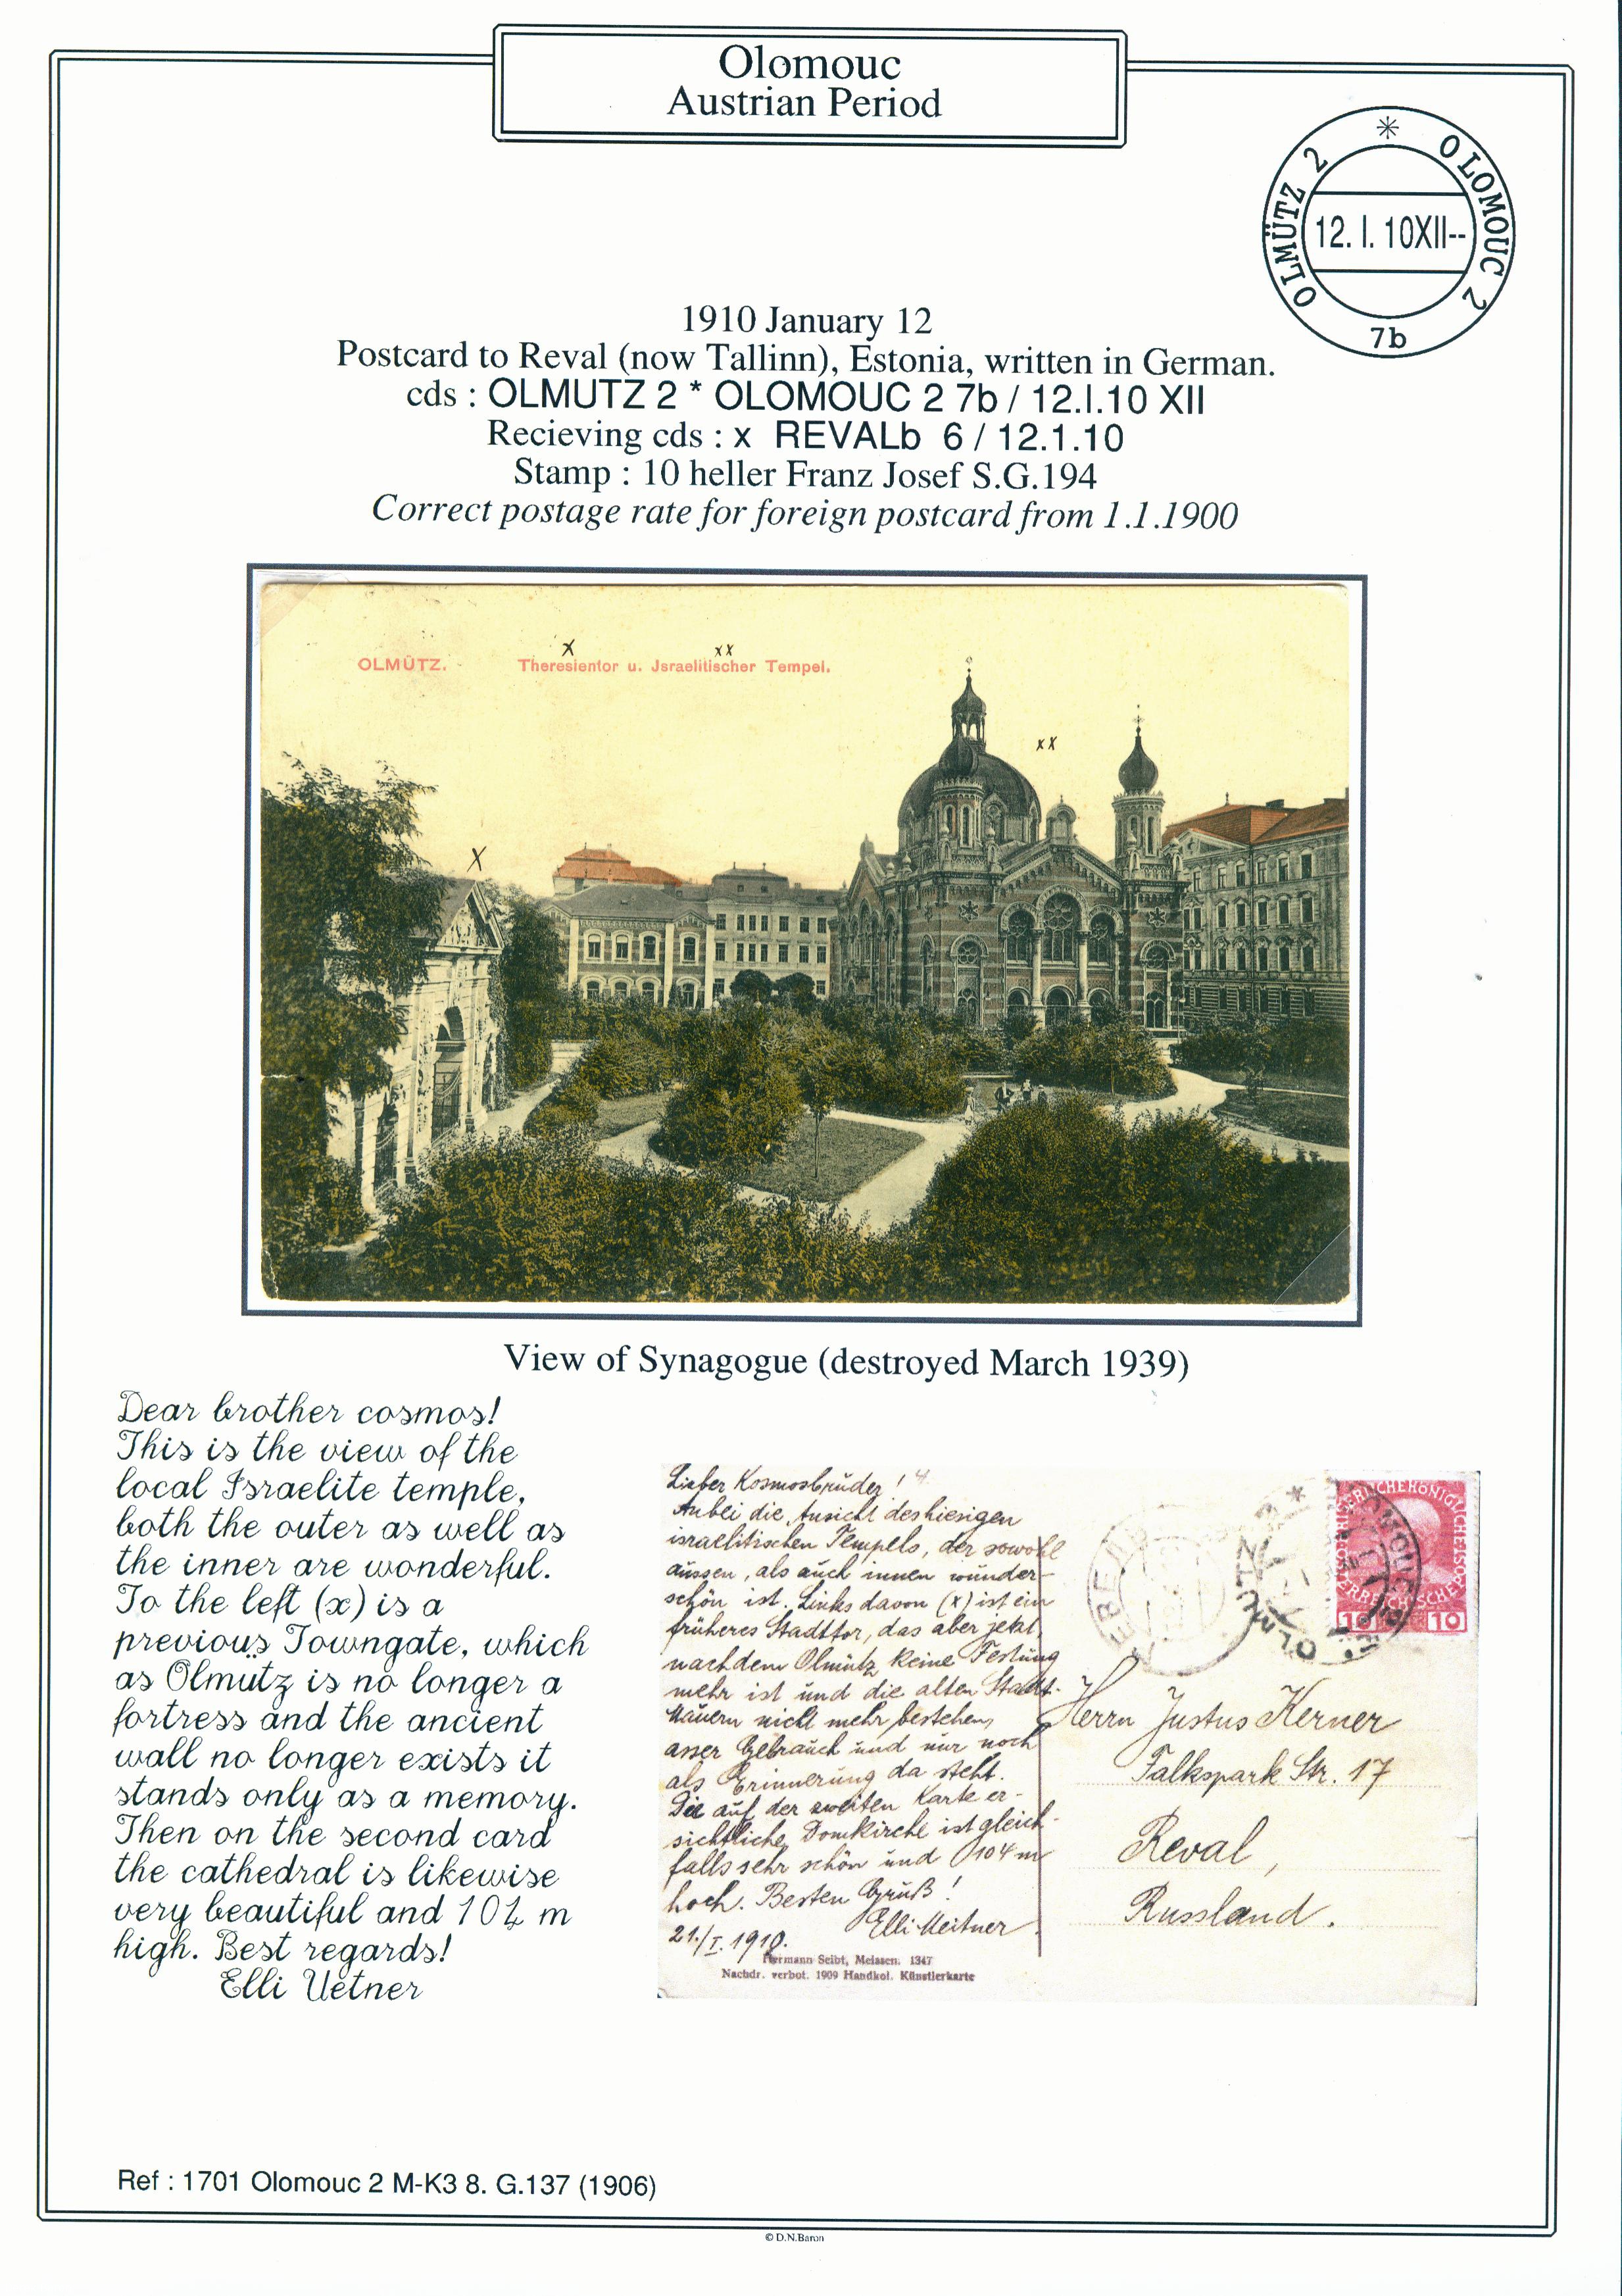 Olomouc
Austrian Period
OLMÜTZ 2 * OLOMOUC 2
12. I. 10XII--
7b
1910 January 12
Postcard to Reval (now Tallinn), Estonia, written in German.
cds : OLMUTZ 2 * OLOMOUC 2 7b / 12.I.10 XII
Recieving cds : x REVALb 6 / 12.1.10
Stamp : 10 heller Franz Josef S.G.194
Correct postage rate for foreign postcard from 1.1.1900
x xx
OLMÜTZ. Theresientor u. Jsraelitischer Tempel.
xx
x
View of Synagogue (destroyed March 1939)
Dear brother cosmos!
This is the view of the
local Israelite temple,
both the outer as well as
the inner are wonderful.
To the left (x) is a
previous Towngate, which
as Olmütz is no longer a
fortress and the ancient
wall no longer exists it
stands only as a memory.
Then on the second card
the cathedral is likewise
very beautiful and 104 m
high. Best regards!
Elli Uetner
Lieber Kosmosbrüder!
Anbei die Ansicht des hiesigen
israelitischen Tempels, der sowohl
aussen, als auch innen wunder-
schön ist. Links davon (x) ist ein
früheres Stadttor, das aber jetzt,
nachdem Olmütz keine Festung
mehr ist und die alten Stadt-
mauern nicht mehr bestehen,
asser Gebrauch und nur noch
als Erinnerung da steht.
Die auf der zweiten Karte er-
sichtliche Domkirche ist gleich-
falls sehr schön und 104 m
hoch. Besten Gruß!
Elli Meitner
21./I. 1910.
Hermann Seibt, Meissen. 1347
Nachdr. verbot. 1909 Handkol. Künstlerkarte
OLMÜTZ
10 10
Herrn Justus Kerner
Falkspark Str. 17
Reval,
Russland.
Ref : 1701 Olomouc 2 M-K3 8. G.137 (1906)
© D.N.Baron